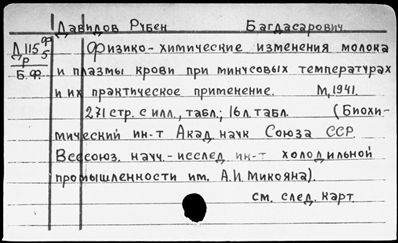 Давидов Рубен Багдасарович.
Д 115 ф/5 Физико-химические изменения молока
р
Б.Ф. и плазмы крови при минусовых температурах
и их практическое применение. М, 1941.
271 стр. с илл., табл.; 16 л. табл. (Биохи-
мический ин-т Акад. наук Союза ССР.
Всесоюз. науч.-исслед. ин-т холодильной
промышленности им. А.И. Микояна).
см. след. карт.